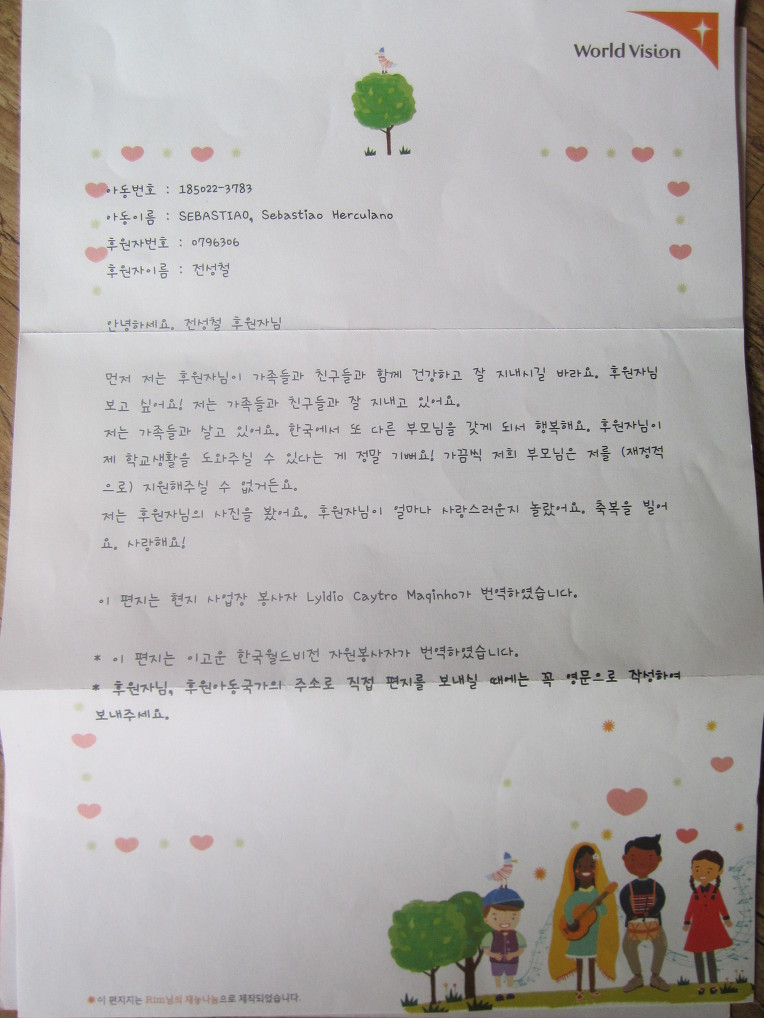 World Vision
아동번호 : 185022-3783
아동이름 : SEBASTIAO, Sebastiao Herculano
후원자번호 : 0796306
후원자이름 : 전성철
안녕하세요. 전성철 후원자님
먼저 저는 후원자님이 가족들과 친구들과 함께 건강하고 잘 지내시길 바라요. 후원자님
보고 싶어요! 저는 가족들과 친구들과 잘 지내고 있어요.
저는 가족들과 살고 있어요. 한국에서 또 다른 부모님을 갖게 되서 행복해요. 후원자님이
제 학교생활을 도와주실 수 있다는 게 정말 기뻐요! 가끔씩 저희 부모님은 저를 (재정적
으로) 지원해주실 수 없거든요.
저는 후원자님의 사진을 봤어요. 후원자님이 얼마나 사랑스러운지 놀랐어요. 축복을 빌어
요. 사랑해요!
이 편지는 현지 사업장 봉사자 Lyldio Caytro Maqinho가 번역하였습니다.
* 이 편지는 이고운 한국월드비전 자원봉사자가 번역하였습니다.
* 후원자님, 후원아동국가의 주소로 직접 편지를 보내실 때에는 꼭 영문으로 작성하여
보내주세요.
이 편지지는 Rim님의 재능나눔으로 제작되었습니다.